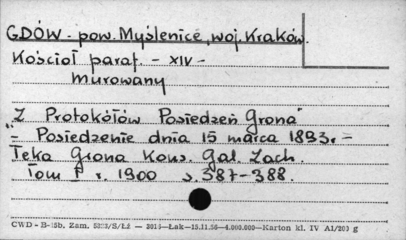 GDÓW - pow. Myślenice, woj. Kraków.
Kościół paraf. - XIV -
murowany
"Z Protokółów Posiedzeń Grona"
- Posiedzenie dnia 15 marca 1893r. -
Teka Grona Kons. Gal. Zach.
Tom I r. 1900 s. 387-388.
CWD - B-15b. Zam. /S/Łź — 2016—Łak—15.11.56—4.000.000—Karton kl. IV A1/200 g